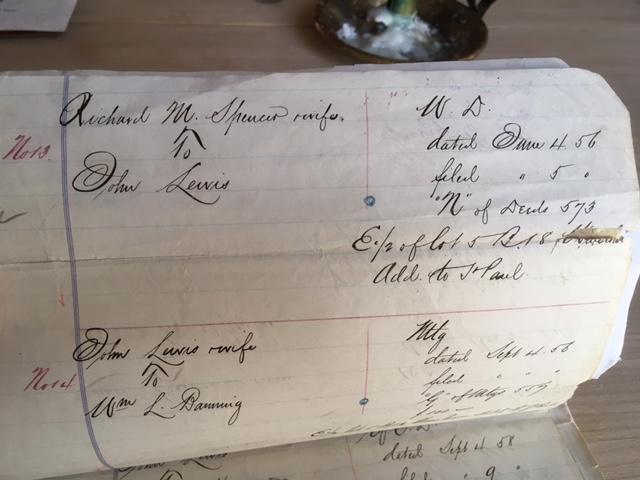 Richard M. Spencer & wife.
To
No 13
John Lewis
W. D.
dated June 4. 56
filed " 5 "
"N" of Deeds 573
E. 1/2 of Lot 5 B. 18
Add. to St Paul.
John Lewis & wife
To
No 14
Wm L. Banning
Mtg
dated Sept 4. 56
filed " "
of Mtgs 559
John Lewis
dated Sept 4 58
filed " 9 "